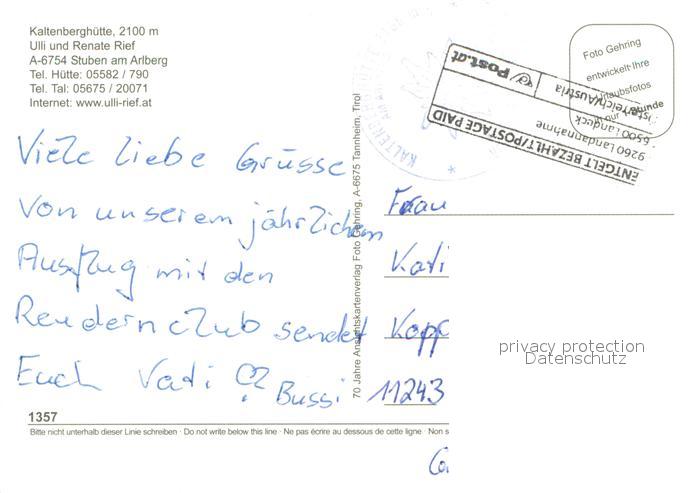 Kaltenberghütte, 2100 m
Ulli und Renate Rief
A-6754 Stuben am Arlberg
Tel. Hütte: 05582 / 790
Tel. Tal: 05675 / 20071
Internet: www.ulli-rief.at
Viele liebe Grüsse
von unserem jährlichem
Ausflug mit den
sendet
Euch Vati
Bussi
1357
Bitte nicht unterhalb dieser Linie schreiben · Do not write below this line · Ne pas écrire au dessous de cette ligne · Non s
70 Jahre Ansichtskartenverlag Foto Gehring, A-6675 Tannheim, Tirol
KALTENBERGHÜTTE
Post.at
Österreich/Austria
6500 Landeck
9260 Landannahme
ENTGELT BEZAHLT/POSTAGE PAID
Foto Gehring
entwickelt Ihre
Urlaubsfotos
in nur 1 Stunde
Frau
Kati
Kopf
11243
privacy protection
Datenschutz